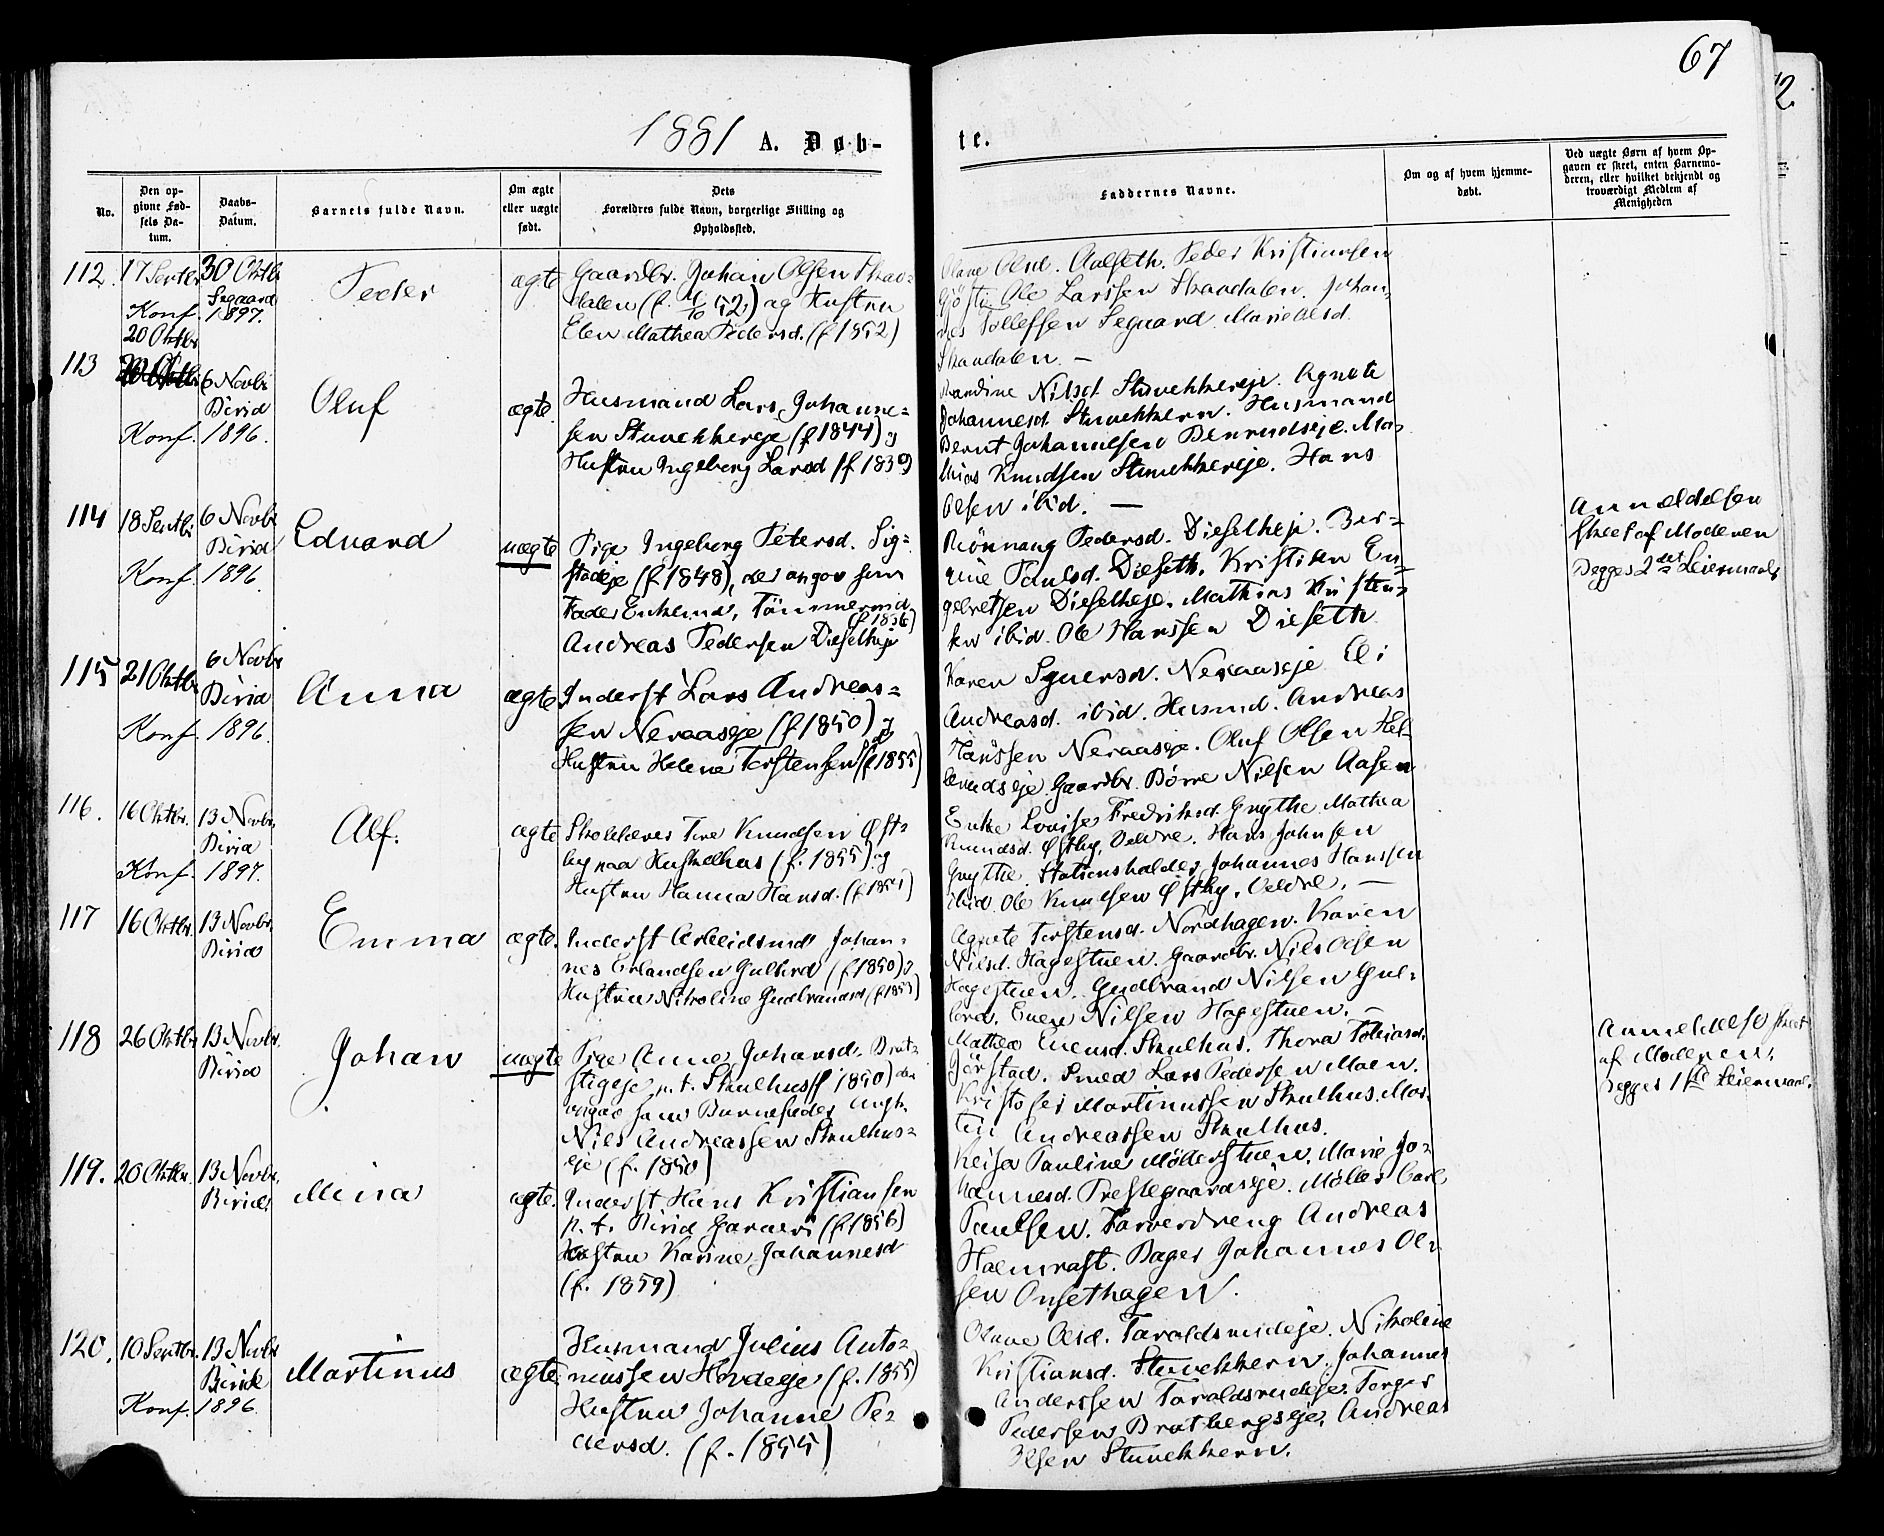 67
1881 A. Døb-
te.
No.
Den op-
givne Fød-
sels Da-
tum.
Daabs-
Datum.
Barnets fulde Navn.
Om ægte
eller uægte
født.
Dets
Forældres fulde Navn, borgerlige Stilling og
Opholdssted.
Faddernes Navne.
Om og af hvem hjemme-
døbt.
Ved uægte Børn af hvem Op-
gaven er skeet, enten Barnemo-
deren, eller hvilket bekjendt og
troværdigt Medlem af
Menigheden
112. 17 Septbr 30 Oktbr
Segaard
Konf. 1897.
Peder
ægte
Gaardbr. Johan Olsen Skaa-
dalen (f. 52) og Hustru
Elen Mathea Pedersd. (f 1852)
Olsd. Aalseth. Peder Kristiansen
Ole Larssen Skaadalen. Johan-
nes Tollefsen Segaard. Marie Olsd.
Skaadalen. —
113
20 Oktbr
6 Novbr
Birid
Konf. 1896.
Oluf
ægte.
Husmand Lars Johanne-
sen Stuvekkereje (f 1844) og
Hustru Ingeborg Larsd (f 1839)
Randine Nilsd. Stuvekkereje. Agnete
Johannesd. Stuvekkern. Husmand
Bernt Johannesen Benrudseje. Ma-
thias Knudsen Stuvekkereje. Hans
Olsen ibid. —
114 18 Septbr 6 Novbr
Birid
Konf. 1896.
Eduard
uægte
Pige Ingeborg Petersd. Sig-
stadeje (f 1848), der angav som
Fader Enkemd, Tømmermd
(f 1836)
Andreas Pedersen Diesetheje
Rönnaug Pedersd. Diesetheje. Ber-
gine Paulsd. Dieseth. Kristian En-
gebretsen Diesetheje. Mathias Kristen-
sen ibid. Ole Hanssen Dieseth
Anmeldelsen
skeet af Moderen
Begges 2det Leiermaal
115 21 Oktbr 6 Novbr
Birid
Konf. 1896.
Anna
ægte
Inderst Lars Andreas-
sen Neraaseje (f 1850) og
Hustru Helene Torstensen (f 1855)
Karen Syversd. Neraaseje. Eli
Andreasd. ibid. Husmd. Andreas
Hanssen Neraaseje. Oluf Olsen
Gaardbr. Børre Nilsen Aasen
116. 16 Oktbr. 13 Novbr.
Birid
Konf. 1897.
Alf.
ægte
Skolelærer Tore Knudsen Øst-
by paa Huskelhus (f. 1855) og
Hustru Hanna Hansd. (f 1851)
Enke Lovise Fredriksd. Grythe. Mathea
Knudsd. Østby, Veldre. Hans Johnsen
Grythe. Stationsholder Johannes Hanssen
ibid. Ole Knudsen Østby. Veldre. —
117 16 Oktbr. 13 Novbr.
Birid
Emma
ægte.
Inderst Arbeidsmd Johan-
nes Erlandsen Gullord (f 1850) og
Hustru Nikoline Gudbrandsd (f 1853)
Agnete Torstensd. Nordhagen. Karen
Nilsd. Hagestuen. Gaardbr. Nils Olsen
Hagestuen. Gudbrand Nilsen Gul-
lord. Even Nilsen Hagestuen. —
118 26 Oktbr 13 Novbr.
Birid
Johan
uægte
Pige Anne Johansd. Brat-
stigeje p. t. Skulhus (f 1850) der
angav som Barnefader Ungk.
Nils Andreassen Skulhus-
eje (f. 1850)
Mathea Evensd. Skulhus. Thora Tobiasd.
Gjørstad. Smed Lars Pedersen Moen.
Kristofer Martinussen Skulhus. Mar-
tin Andreassen Skulhus.
Anmeldelse skeet
af Moderen.
Begges 1ste Leiermaal.
119. 20 Oktbr. 13 Novbr.
Birid
Mina
ægte.
Inderst Hans Kristiansen
p. t. Birid Garveri (f 1856)
Hustru Karine Johannesd
(f. 1859)
Pauline Møllerstuen. Marie Jo-
hannesd. Prestegaardseje. Møller Carl
Paulsen. Farverdreng Andreas
Holmraft. Bager Johannes Ol-
sen Onsethagen.
120. 10 Septbr. 13 Novbr
Birid
Konf. 1896.
Martinus
ægte
Husmand Julius Anto-
niussen Hovdeeje (f. 1855)
Hustru Johanne Pe-
dersd. (f. 1855)
Olave Olsd. Taraldsrudeje. Nikoline
Kristiansd. Stuvekkern. Johannes
Anderssen Taraldsrudeje. Torger
Pedersen Bratbergseje. Andreas
Olsen Stuvekkern.